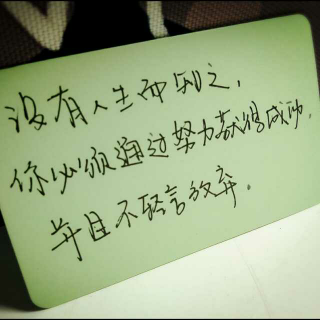 没有人生而知之，
你必须通过努力获得成功，
并且不轻言放弃。